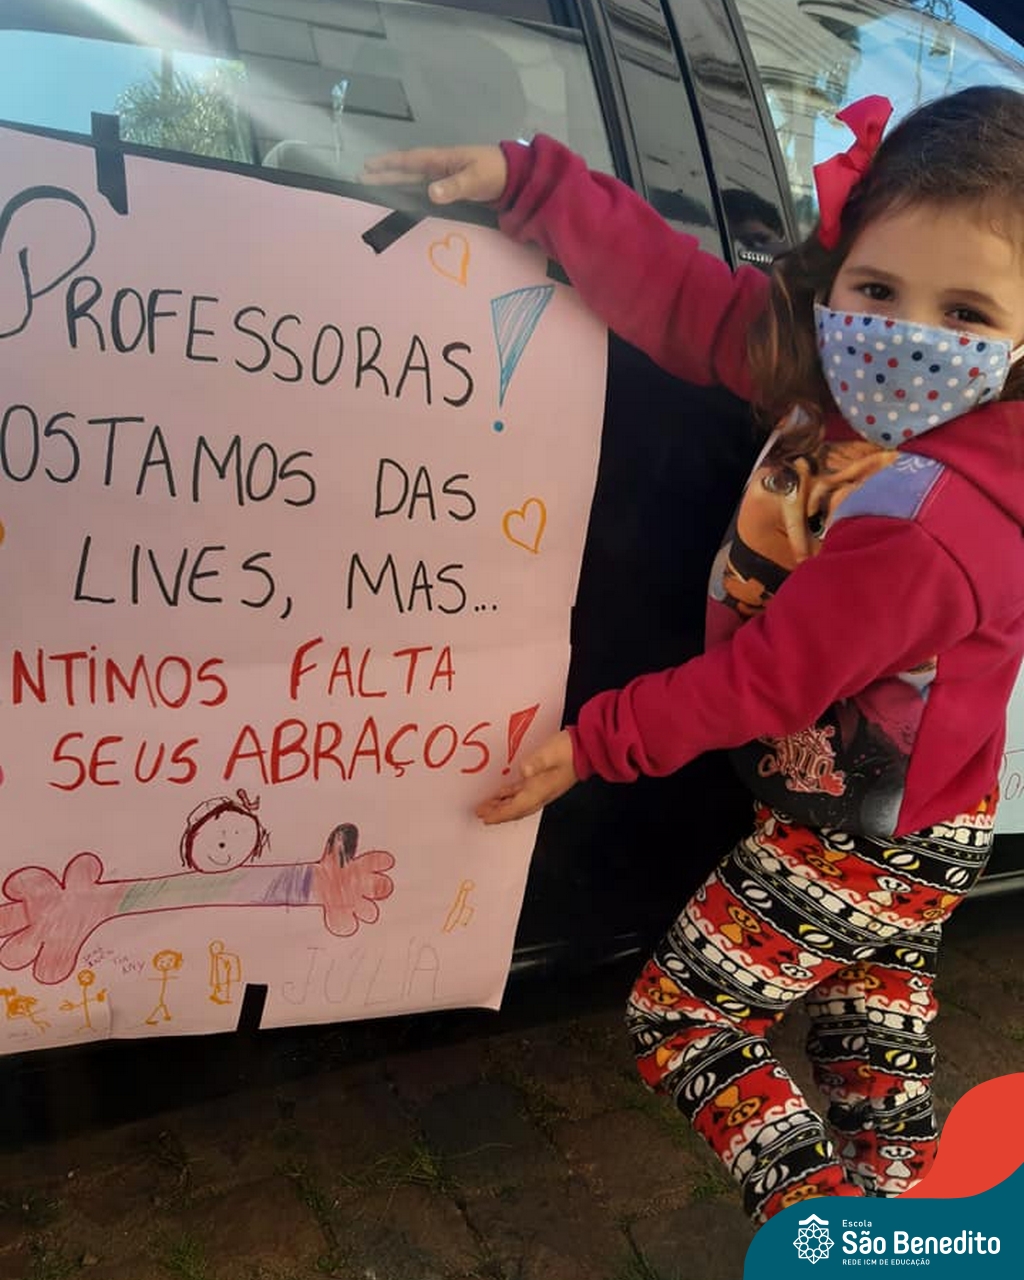 PROFESSORAS!
OSTAMOS DAS
LIVES, MAS...
NTIMOS FALTA
SEUS ABRAÇOS!
JÚLIA
Escola
São Benedito
REDE ICM DE EDUCAÇÃO